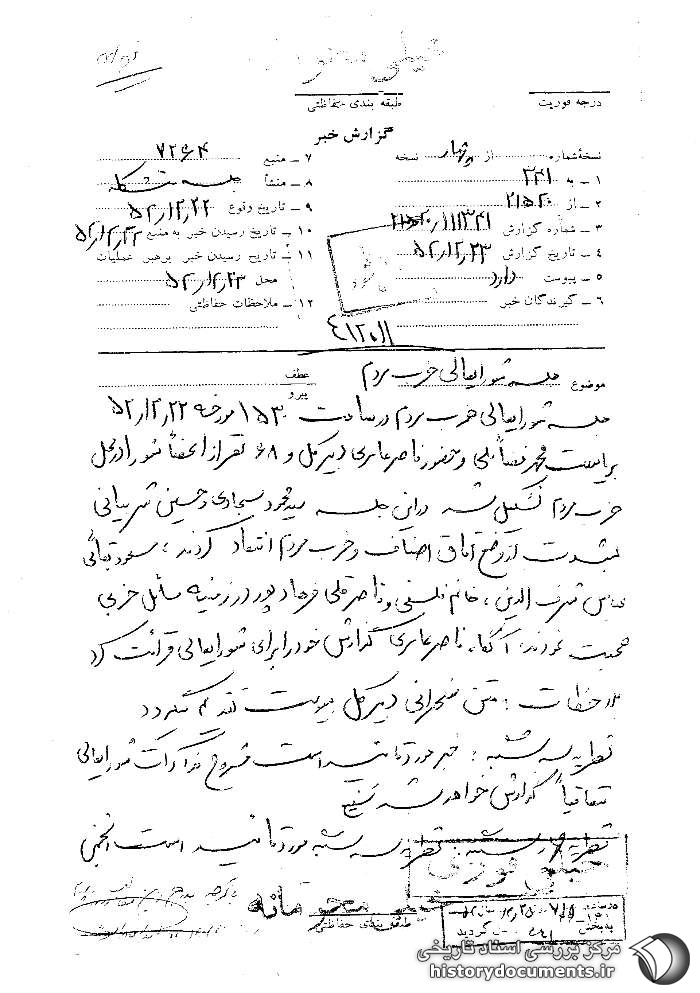 خیلی محرمانه
درجه فوریت
طبقه بندی حفاظتی
گزارش خبر
نسخه‌شماره از چهار نسخه
۱ ــ به ۳۴۱
۲ ــ از ۲۱ه۲۰
۳ ــ شماره گزارش ۲۱ه۲۰/۱۱۱۳۴۱
۴ ــ تاریخ گزارش ۵۲/۲/۲۳
۵ ــ پیوست دارد
۶ ــ گیرندگان خبر
۷ ــ منبع ۷۲۶۴
۸ ــ منشأ جلسه متشکله
۹ ــ تاریخ وقوع ۵۲/۲/۲۲
۱۰ ــ تاریخ رسیدن خبر به منبع ۵۲/۲/۲۲
۱۱ ــ تاریخ رسیدن خبر برهبر عملیات
محل ۵۲/۲/۲۳
۱۲ ــ ملاحظات حفاظتی
۴۱۲۰۱۱
موضوع جلسه شورایعالی حزب مردم
عطف
پیرو
جلسه شورایعالی حزب مردم در ساعت ۱۵۳۰ مورخه ۵۲/۲/۲۲
بریاست محمد فضائلی و حضور ناصر عامری دبیرکل و ۶۸ نفر از اعضأ شورا در محل
حزب مردم تشکیل شد در این جلسه سید محمود سجادی و حسین شربیانی
بشدت از وضع اطاق اصناف و حزب مردم انتقاد کردند ، مسعود بقائی
عباس شرف الدین ، خانم فلسفی و ناصرقلی فرهادپور در زمینه مسائل حزبی
صحبت نمودند آنگاه ناصر عامری گزارش خود را برای شورایعالی قرائت کرد
ملاحظات : متن سخنرانی دبیرکل بپیوست تقدیم میگردد
نظریه سه شنبه : خبر مورد تائید است مشروح مذاکرات شورایعالی
متعاقباً گزارش خواهد شد
نظریه چهارشنبه : نظریه سه شنبه مورد تائید است
خیلی محرمانه
طبقه بندی حفاظتی
مرکز بررسی اسناد تاریخی
historydocuments.ir